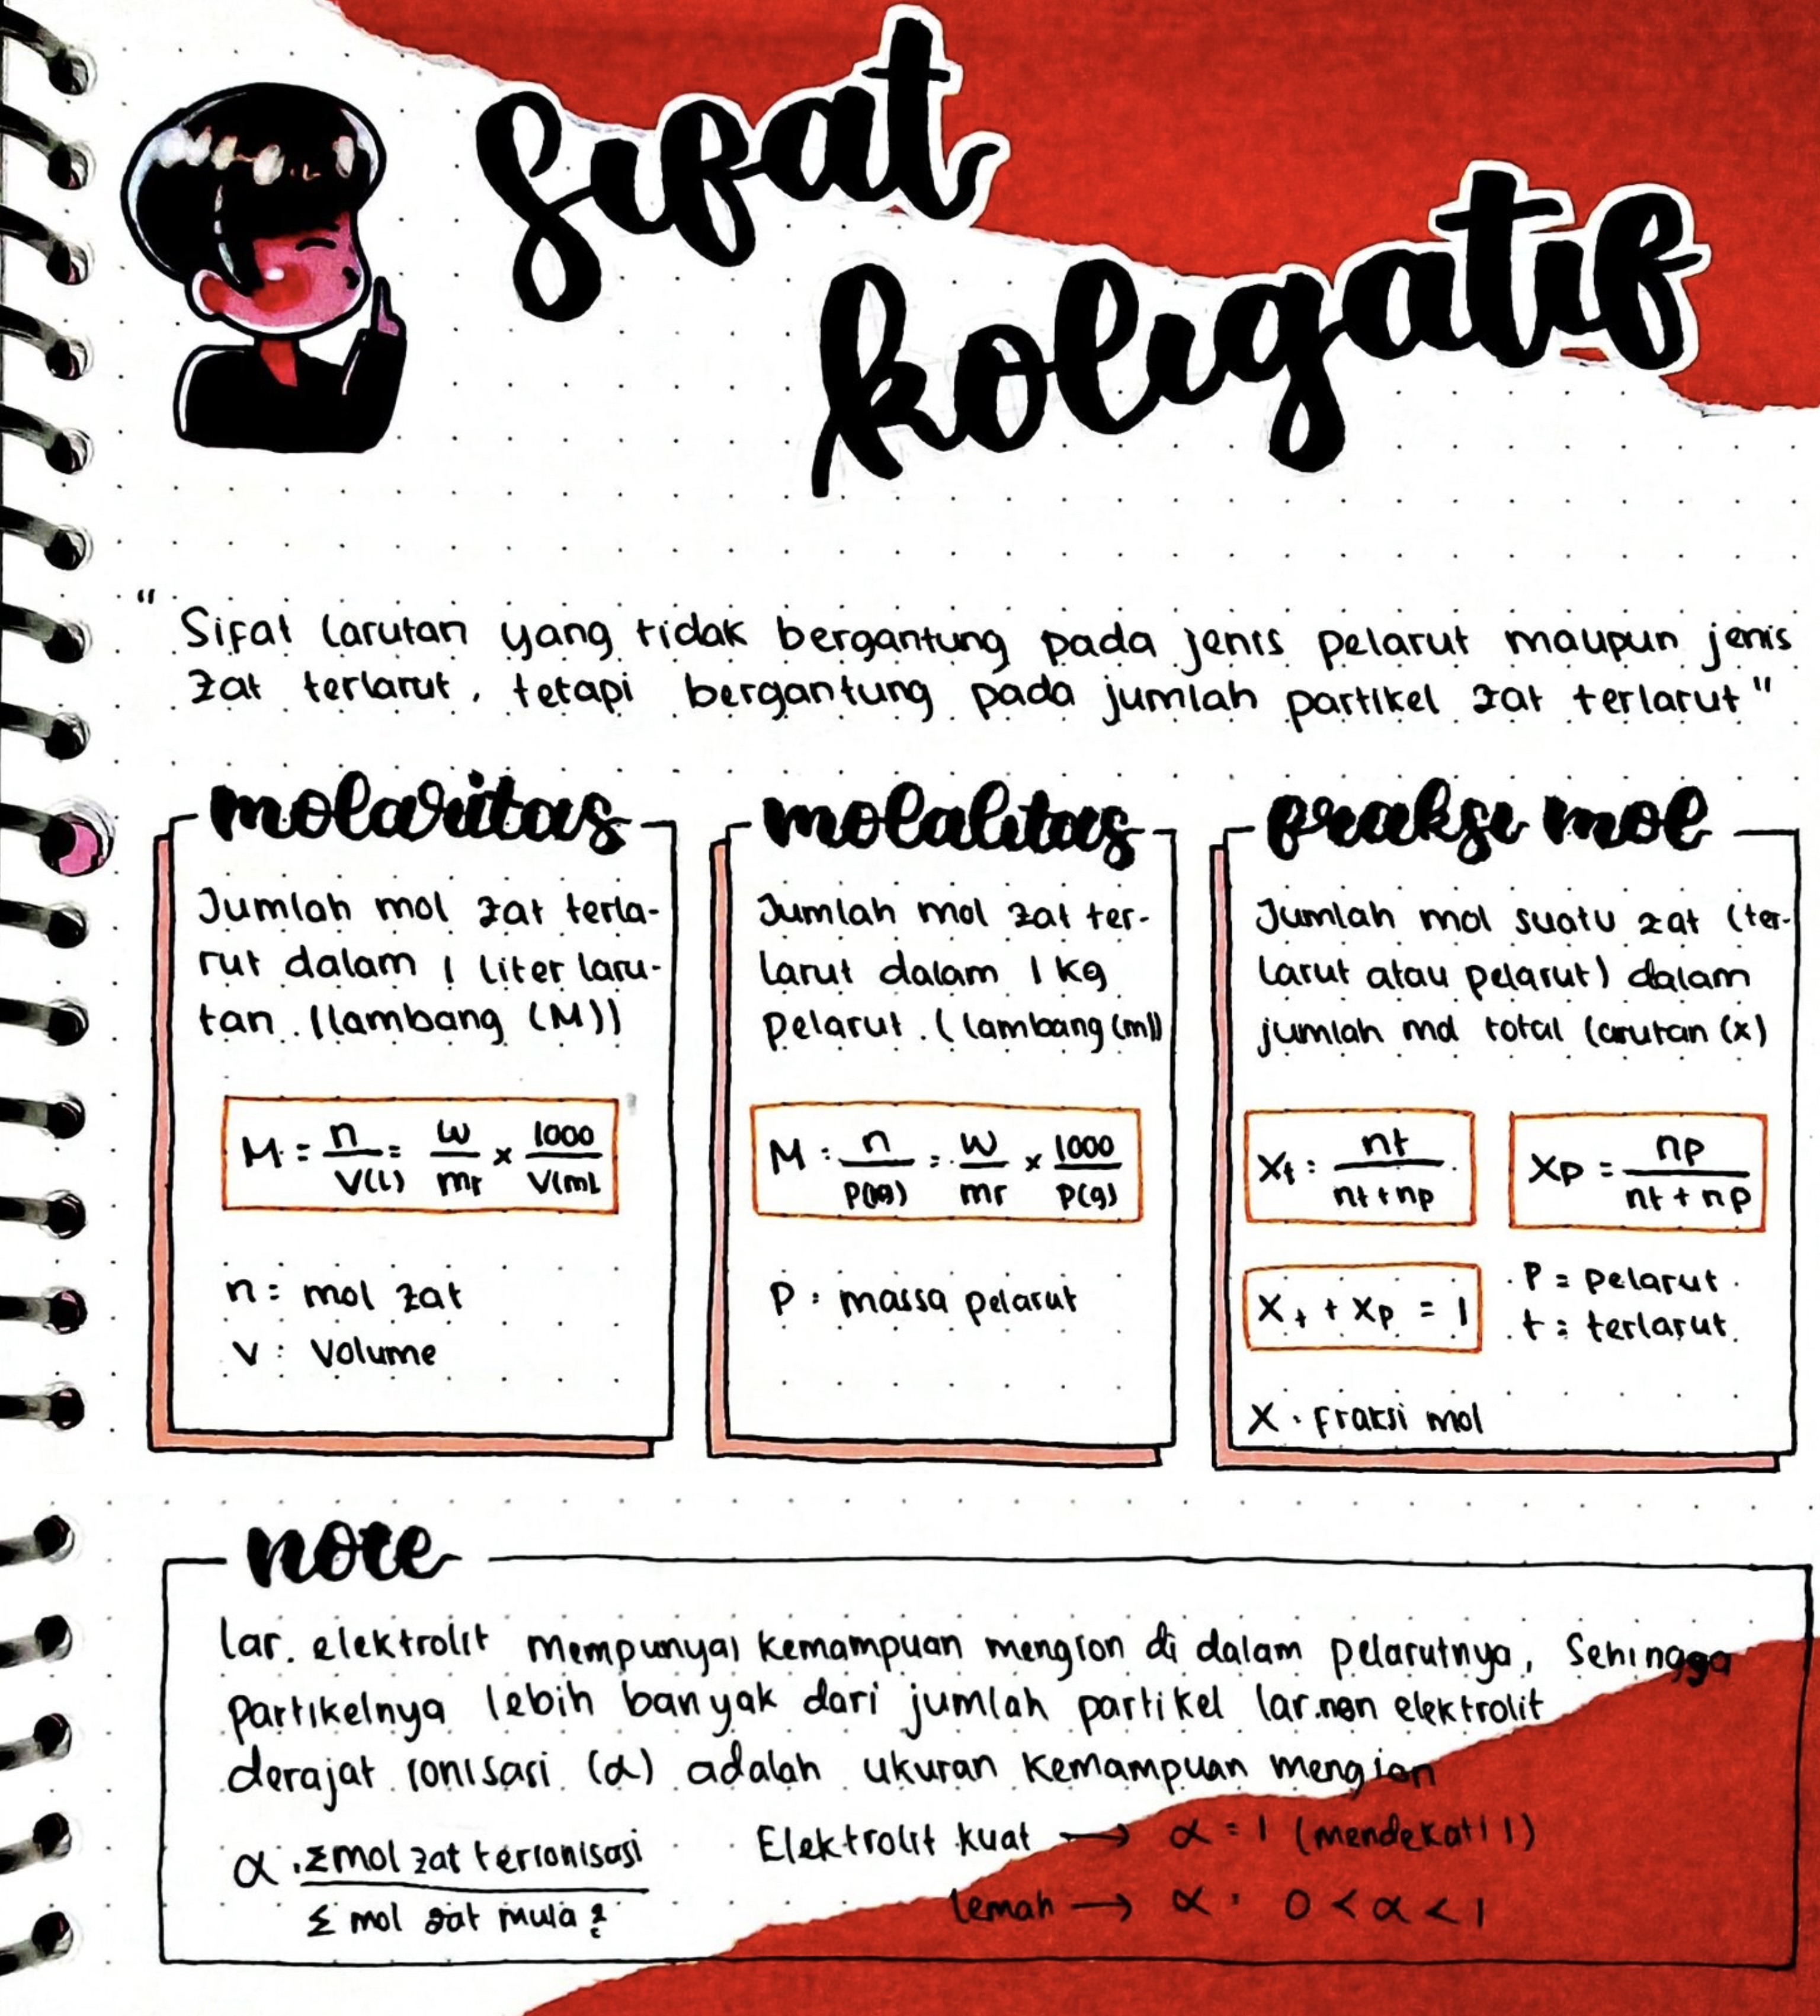 Sifat
koligatif
"Sifat larutan yang tidak bergantung pada jenis pelarut maupun jenis
zat terlarut, tetapi bergantung pada jumlah partikel zat terlarut"
molaritas
Jumlah mol zat terla-
rut dalam 1 liter laru-
tan. (lambang (M))
M = n/V(L) = w/mr × 1000/V(mL
n = mol zat
V : Volume
molalitas
Jumlah mol zat ter-
larut dalam 1 kg
pelarut. (lambang (m))
M : n/P(kg) = w/mr × 1000/P(g)
P : massa pelarut
fraksi mol
Jumlah mol suatu zat (ter-
larut atau pelarut) dalam
jumlah mol total larutan (x)
Xt : nt/nt+np
Xp = np/nt + np
Xt + Xp = 1
P = pelarut
t = terlarut
X : Fraksi mol
note
lar. elektrolit mempunyai kemampuan mengion di dalam pelarutnya, sehingga
partikelnya lebih banyak dari jumlah partikel lar. non elektrolit
derajat ionisasi (α) adalah ukuran kemampuan mengion
α : Σ mol zat terionisasi/Σ mol zat mula2
Elektrolit kuat → α = 1 (mendekati 1)
lemah → α : 0 < α < 1